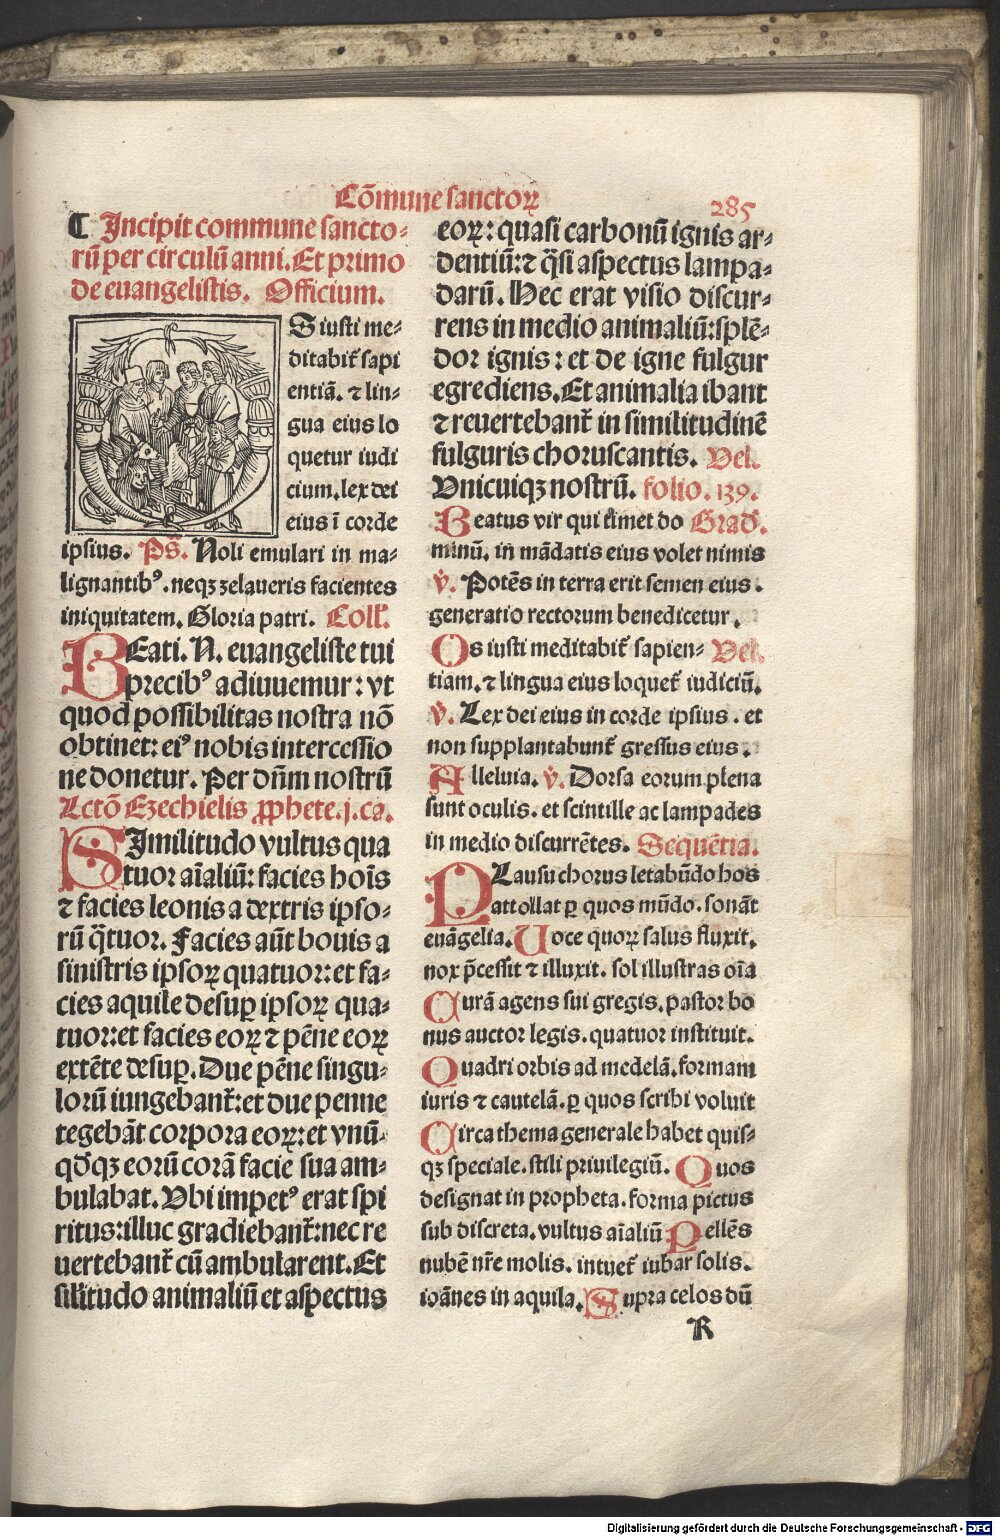 Cōmune sanctoꝝ
285
¶ Incipit commune sancto⸗
rū per circulū anni. Et primo
de euangelistis. Officium.
OS iusti me⸗
ditabit̃ sapi
entiā. ⁊ lin⸗
gua eius lo
quetur iudi
cium. lex dei
eius ī corde
ipsius. Ps̄. Noli emulari in ma⸗
lignantibꝰ. neqꝫ zelaueris facientes
iniquitatem. Gloria patri. Coll̓.
BEati. N. euangeliste tui
precibꝰ adiuuemur: vt
quod possibilitas nostra nō
obtinet: eiꝰ nobis intercessio
ne donetur. Per dn̄m nostrū
Lctō Ezechielis ꝓphete. j. ca.
SImilitudo vultus qua
tuor aīaliū: facies hoīs
⁊ facies leonis a dextris ipso⸗
rū q̄tuor. Facies aūt bouis a
sinistris ipsoꝝ quatuor: et fa⸗
cies aquile desuꝑ ipsoꝝ qua⸗
tuor: et facies eoꝝ ⁊ pēne eoꝝ
extēte desuꝑ. Due pēne singu⸗
lorū iungebant̃: et due penne
tegebāt corpora eoꝝ: et vnū⸗
qd̄qꝫ eorū corā facie sua am⸗
bulabat. Vbi impetꝰ erat spi
ritus: illuc gradiebant̃: nec re
uertebant̃ cū ambularent. Et
sil̓itudo animaliū et aspectus
eoꝝ: quasi carbonū ignis ar⸗
dentiū: ⁊ q̄si aspectus lampa⸗
darū. Hec erat visio discur⸗
rens in medio animaliū: splē⸗
dor ignis: et de igne fulgur
egrediens. Et animalia ibant
⁊ reuertebant̃ in similitudinē
fulguris choruscantis. Vel.
Vnicuiqꝫ nostrū. folio. 139.
Beatus vir qui timet do Grad̓.
minū. in mādatis eius volet nimis
v̓. Potēs in terra erit semen eius.
generatio rectorum benedicetur.
Os iusti meditabit̃ sapien⸗ Vel.
tiam. ⁊ lingua eius loquet̃ iudiciū.
v̓. Lex dei eius in corde ipsius. et
non supplantabunt̃ gressus eius.
Alleluia. v̓. Dorsa eorum plena
sunt oculis. et scintille ac lampades
in medio discurrētes. Sequētia.
PLausu chorus letabūdo hos
attollat ꝑ quos mūdo. sonāt
euāgelia. Uoce quoꝝ salus fluxit.
nox p̄cessit ⁊ illuxit. sol illustras oīa
Curā agens sui gregis. pastor bo
nus auctor legis. quatuor instituit.
Quadri orbis ad medelā. formam
iuris ⁊ cautelā. ꝑ quos scribi voluit
Circa thema generale habet quis⸗
qꝫ speciale. stili priuilegiū. Quos
designat in propheta. forma pictus
sub discreta. vultus aīaliū Pellēs
nubē nr̄e molis. intuet̃ iubar solis.
ioānes in aquila. Supra celos dū
R
Digitalisierung gefördert durch die Deutsche Forschungsgemeinschaft - DFG